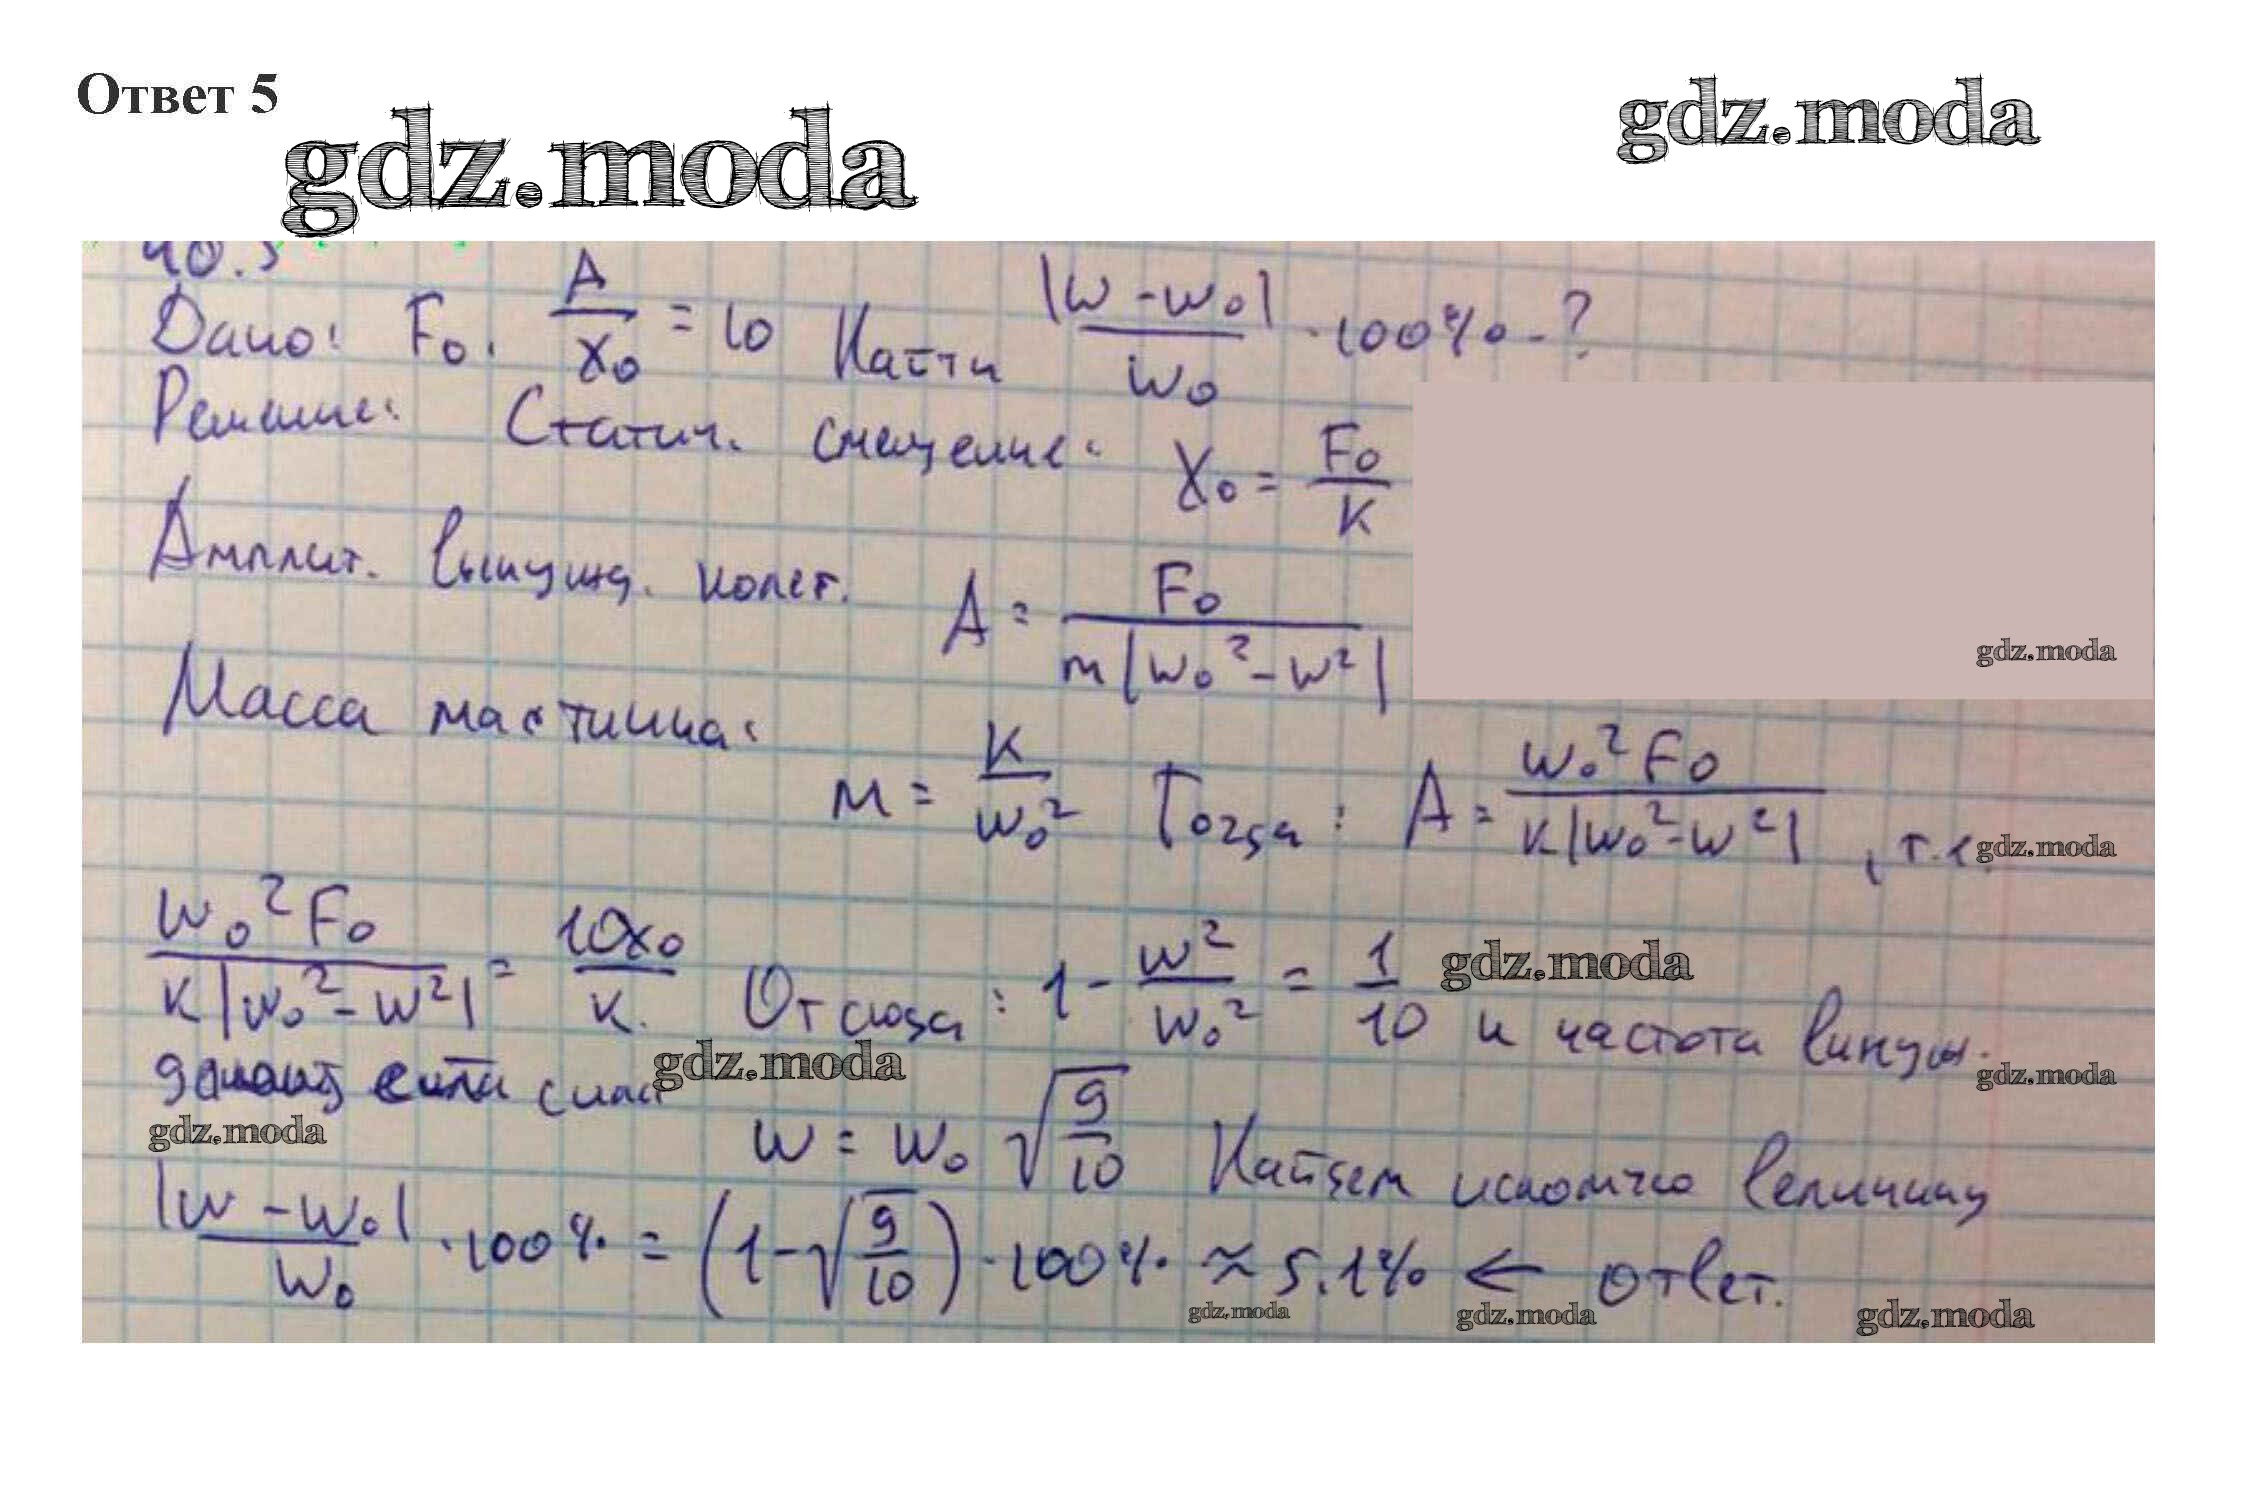 Ответ 5
gdz.moda
gdz.moda
40.5
Дано: F₀. A/x₀ = 10 Найти |w - w₀|/w₀ · 100% - ?
Решение: Статич. смещение: x₀ = F₀/K
Амплит. вынужд. колеб. A = F₀/(m|w₀² - w²|)
gdz.moda
Масса маятника: m = K/w₀² Тогда: A = w₀²F₀/(K|w₀² - w²|), т.к.
gdz.moda
w₀²F₀/(K|w₀² - w²|) = 10x₀/K. Отсюда: 1 - w²/w₀² = 1/10 и частота вынуж-
gdz.moda
дающ сила силы w = w₀ √(9/10) Найдем искомую величину
gdz.moda
gdz.moda
gdz.moda
|w - w₀|/w₀ · 100% = (1 - √(9/10)) · 100% ≈ 5.1% ← ответ.
gdz.moda
gdz.moda
gdz.moda